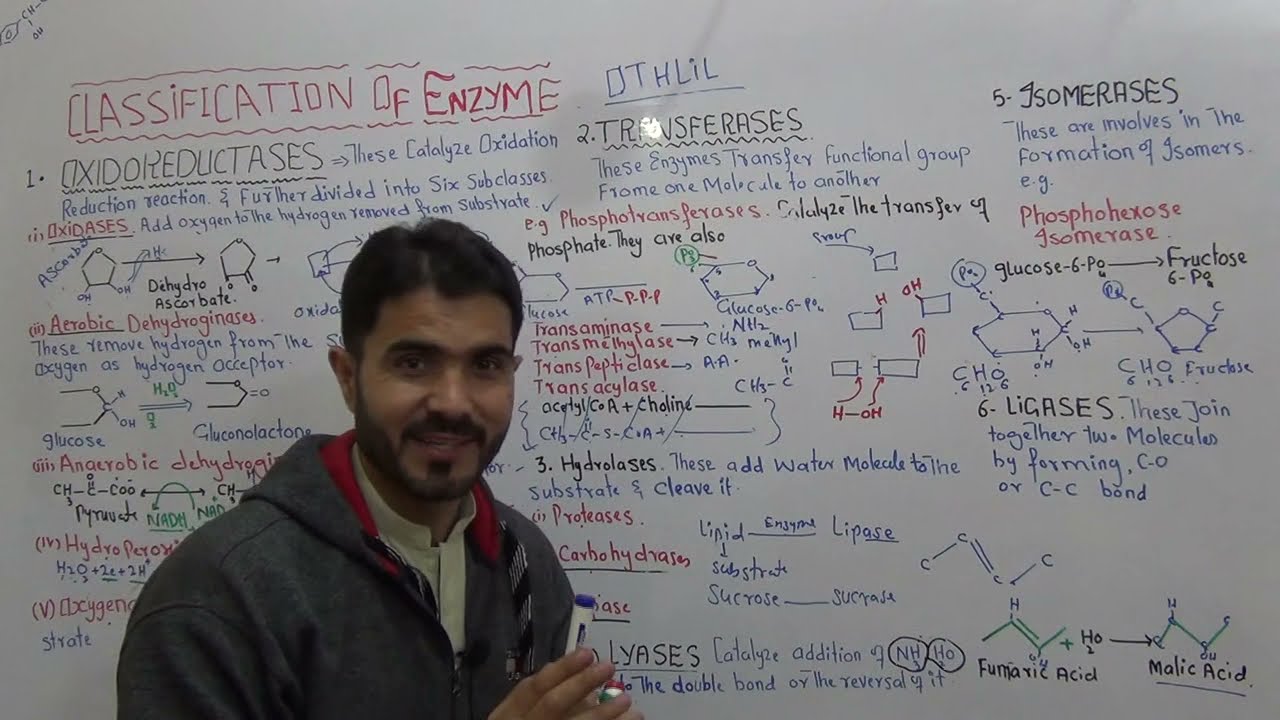 CLASSIFICATION OF ENZYME
OTHLIL
1. OXIDOREDUCTASES ⇒ These Catalyze Oxidation
Reduction reaction. & Further divided into Six Subclasses
(i) OXIDASES. Add oxygen to the hydrogen removed from Substrate. ✓
Ascorba
H₂
OH OH
Dehydro
Ascorbate.
oxida
(ii) Aerobic Dehydroginases.
These remove hydrogen from the
Oxygen as hydrogen acceptor.
H
OH
H₂O₂
O₂
=O
glucose
Gluconolactone
(iii) Anaerobic dehydrogi
CH₃-C-COO
O
CH
Pyruvate
NADH
NAD
(IV) HydroPerox
H₂O₂ + 2e + 2H⁺
(V) Oxygen
strate
2. TRANSFERASES
These Enzymes Transfer functional group
Frome one Molecule to another
e.g Phosphotransferases. Catalyze The transfer of
Phosphate. They are also
group
ATP P-P-P
Glucose-6-Po₄
Transaminase → NH₂
Transmethylase → CH₃ methyl
TransPeptidlase → A.A.
Transacylase.
CH₃-C
O
acetyl/CoA + Choline
CH₃-C-S-CoA +
H
OH
H-OH
3. Hydrolases. These add water Molecule to The
Substrate & Cleave it.
(i) Proteases.
Carbohydrases
Lipid Enzyme Lipase
substrate
Sucrose sucrase
LYASES Catalyze addition of NH₃ H₂O
to The double bond or The reversal of it
5- ISOMERASES
These are involves in The
formation of Isomers.
e.g.
Phosphohexose
Isomerase.
glucose-6-Po₄ → Fructose
6-Po₄
C
H
H
OH
OH
C
C
C₆H₁₂O₆
C₆H₁₂O₆ Fructose
6- LIGASES. These Join
together two Molecules
by forming, C-O
or C-C bond
C C
C C
H
OH
+ H₂O →
H
OH
Fumaric Acid
Malic Acid